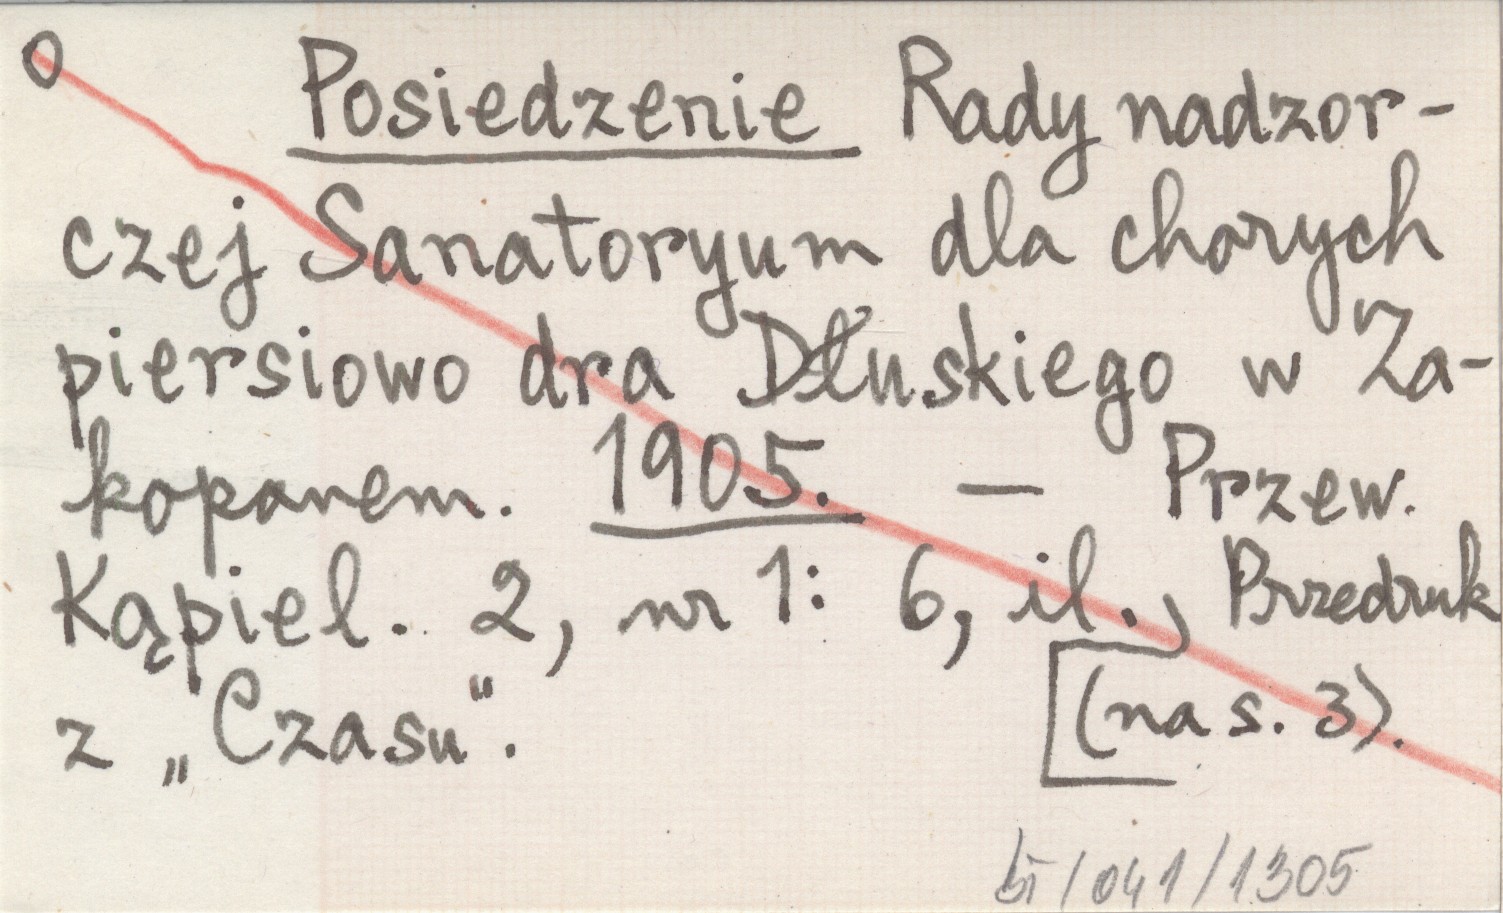 0 Posiedzenie Rady nadzor-
czej Sanatoryum dla chorych
piersiowo dra Dłuskiego w Za-
kopanem. 1905. — Przew.
Kąpiel. 2, nr 1: 6, il., Przedruk
z „Czasu". (na s. 3).
/041/1305